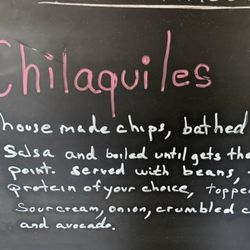 Chilaquiles
house made chips, bathed
Salsa and boiled until gets the
point. served with beans,
protein of your choice, topped
Sourcream, onion, crumbled
and avocado.